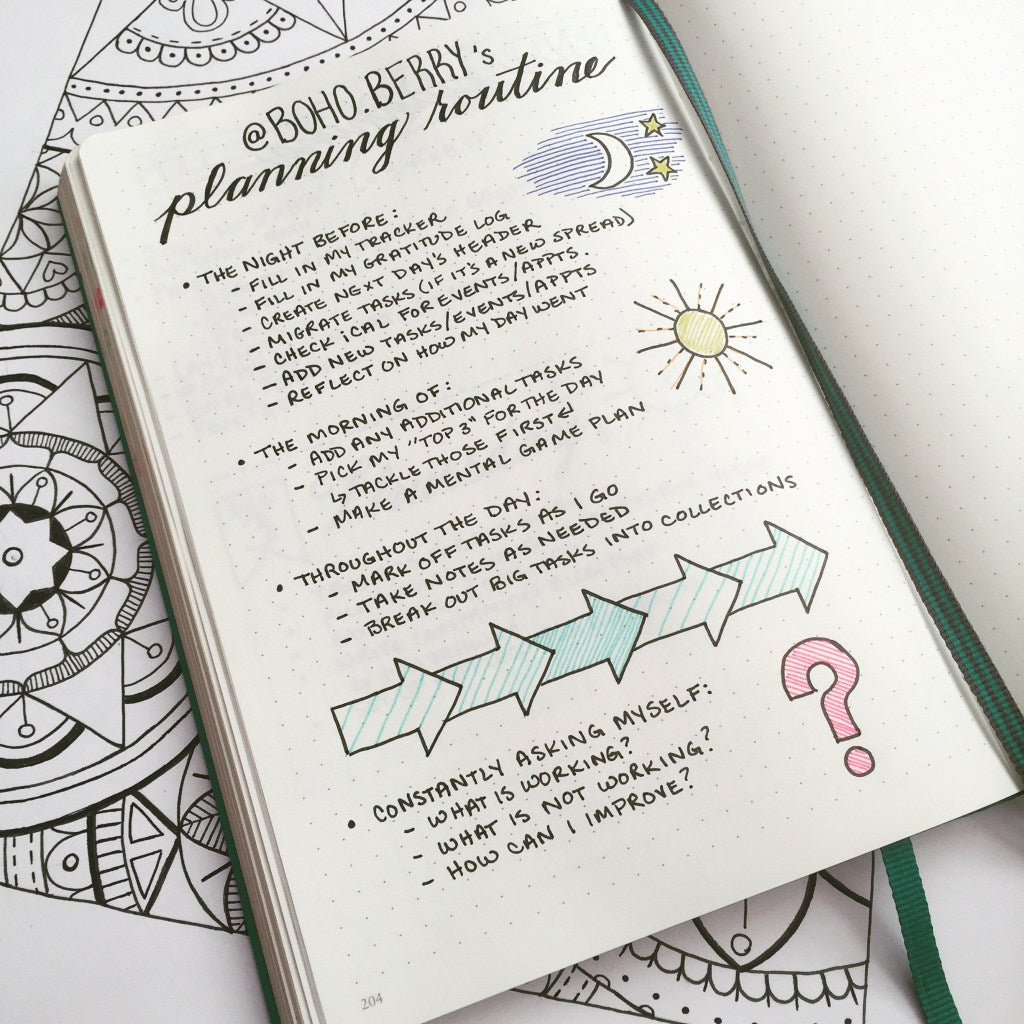 @BOHO.BERRY's
planning routine
• THE NIGHT BEFORE:
- FILL IN MY TRACKER
- FILL IN MY GRATITUDE LOG
- CREATE NEXT DAY'S HEADER
- MIGRATE TASKS (IF IT'S A NEW SPREAD)
- CHECK iCAL FOR EVENTS/APPTS.
- ADD NEW TASKS/EVENTS/APPTS
- REFLECT ON HOW MY DAY WENT
• THE MORNING OF:
- ADD ANY ADDITIONAL TASKS
- PICK MY "TOP 3" FOR THE DAY
↳ TACKLE THOSE FIRST ↲
- MAKE A MENTAL GAME PLAN
• THROUGHOUT THE DAY:
- MARK OFF TASKS AS I GO
- TAKE NOTES AS NEEDED
- BREAK OUT BIG TASKS INTO COLLECTIONS
?
• CONSTANTLY ASKING MYSELF:
- WHAT IS WORKING?
- WHAT IS NOT WORKING?
- HOW CAN I IMPROVE?
204